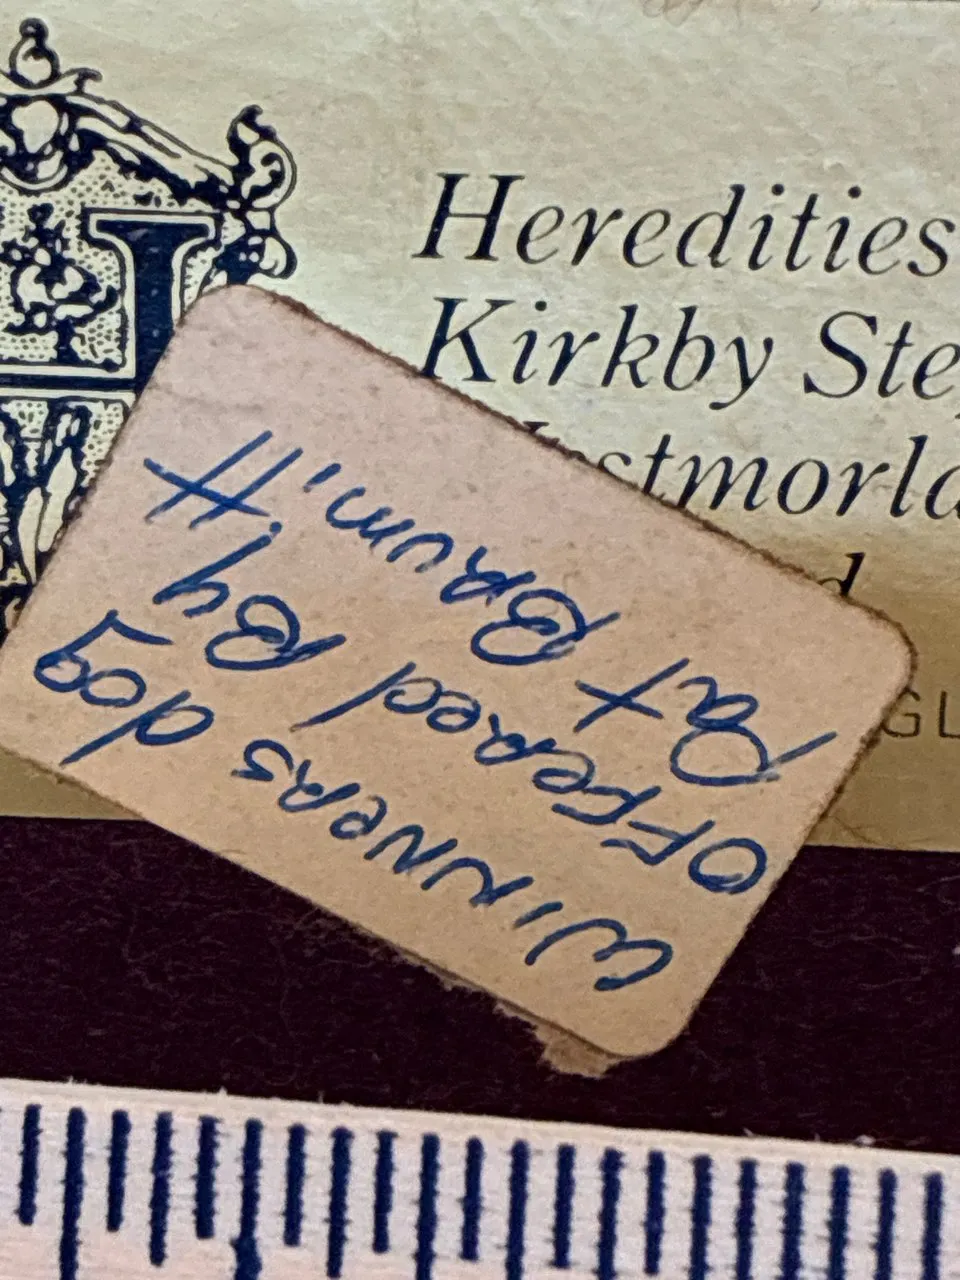 Heredities
Kirkby Ste
stmorla
d
GL
WINNERS dog
OFFERED By
Pat BRUM.
H